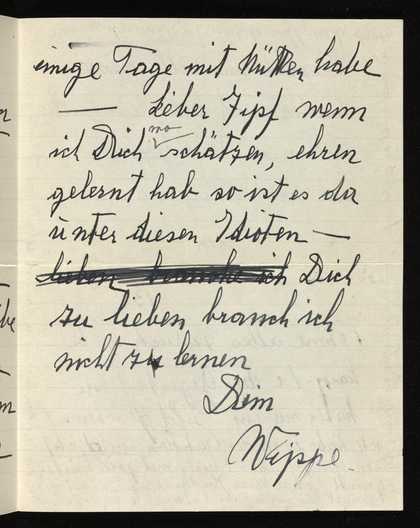 einige Tage mit Müttern habe
— Lieber Zipf wenn
ich Dich wo schätzen, ehren
gelernt hab so ist es da
unter diesen Idioten —
lieben brauche ich Dich
zu lieben brauch ich
nicht zu lernen
Dein
Wippe.